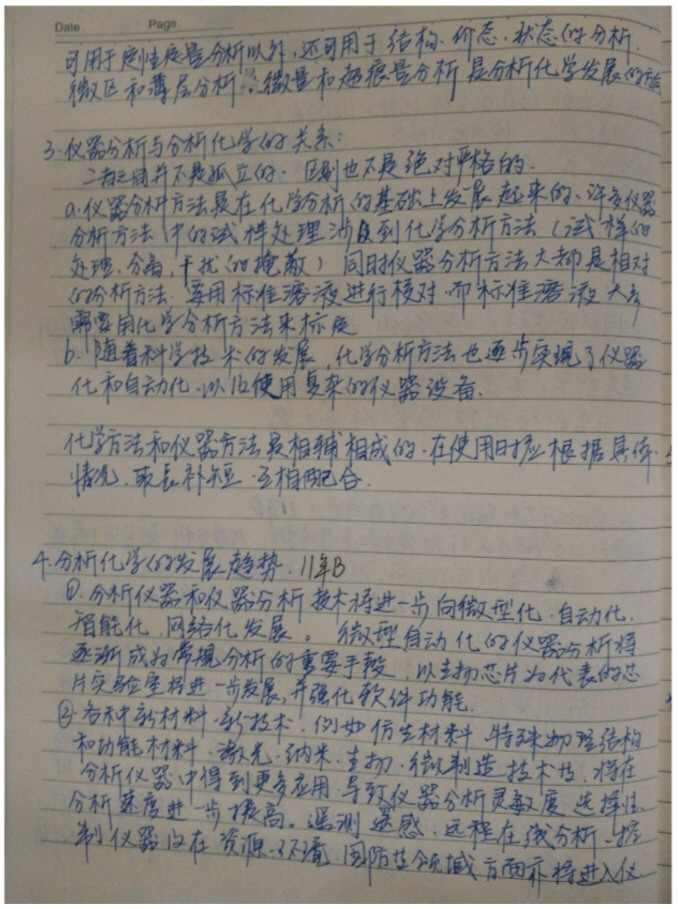 Date Page
可用于定性定量分析以外,还可用于结构、价态、状态的分析
微区和薄层分析、微量和超痕量分析是分析化学发展的方向
3.仪器分析与分析化学的关系:
二者之间并不是孤立的、区别也不是绝对严格的.
a.仪器分析方法是在化学分析的基础上发展起来的、许多仪器
分析方法中的试样处理涉及到化学分析方法(试样的
处理、分离、干扰的掩蔽)同时仪器分析方法大都是相对
的分析方法.要用标准溶液进行核对而标准溶液大多
需要用化学分析方法来标定
b.随着科学技术的发展,化学分析方法也逐步实现了仪器
化和自动化.以及使用复杂的仪器设备.
化学方法和仪器方法是相辅相成的.在使用时应根据具体
情况,取长补短.互相配合.
4.分析化学的发展趋势.11年B
①.分析仪器和仪器分析技术将进一步向微型化、自动化、
智能化、网络化发展。微型自动化的仪器分析将
逐渐成为常规分析的重要手段,以生物芯片为代表的芯
片实验室将进一步发展,并强化软件功能.
②各种新材料、新技术,例如仿生材料、特殊物理结构
和功能材料、激光、纳米、生物、微制造技术等,将在
分析仪器中得到更多应用、导致仪器分析灵敏度、选择性、
分析速度进一步提高。遥测遥感、远程在线分析、控
制仪器 在资源、环境、国防等领域方面亦将进入仪